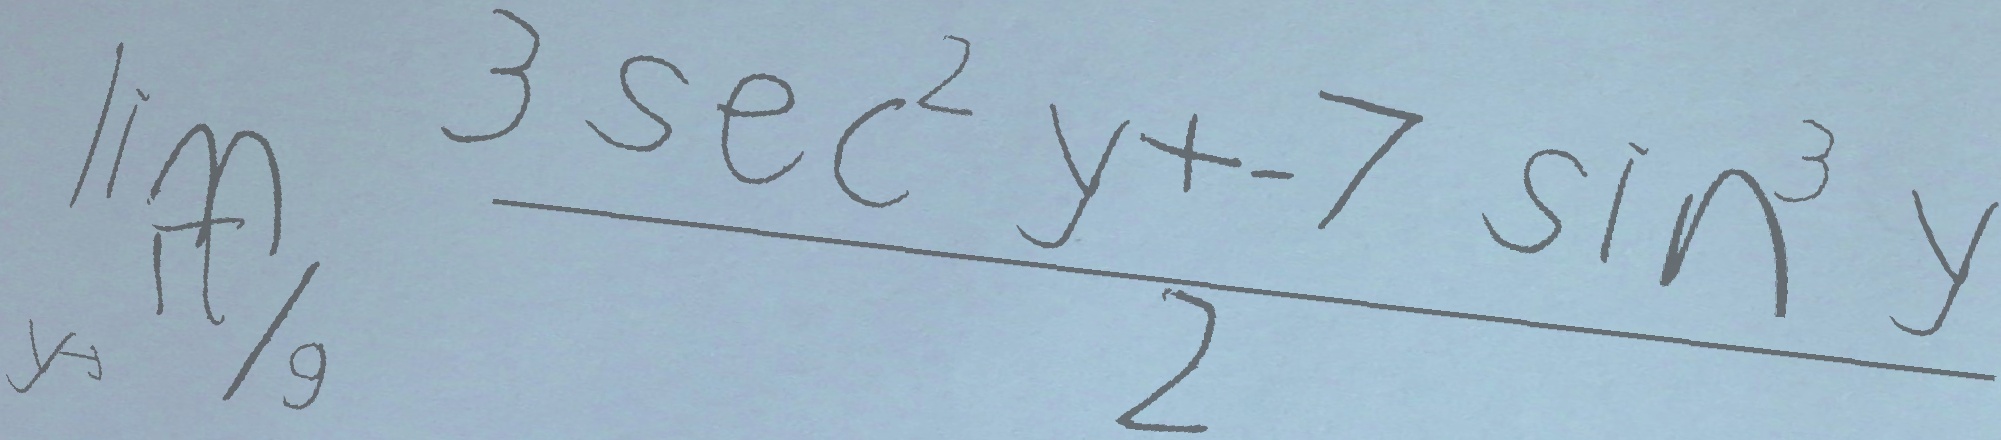 \lim_{y \to \pi/9} \frac{3 \sec^2 y + -7 \sin^3 y}{2}